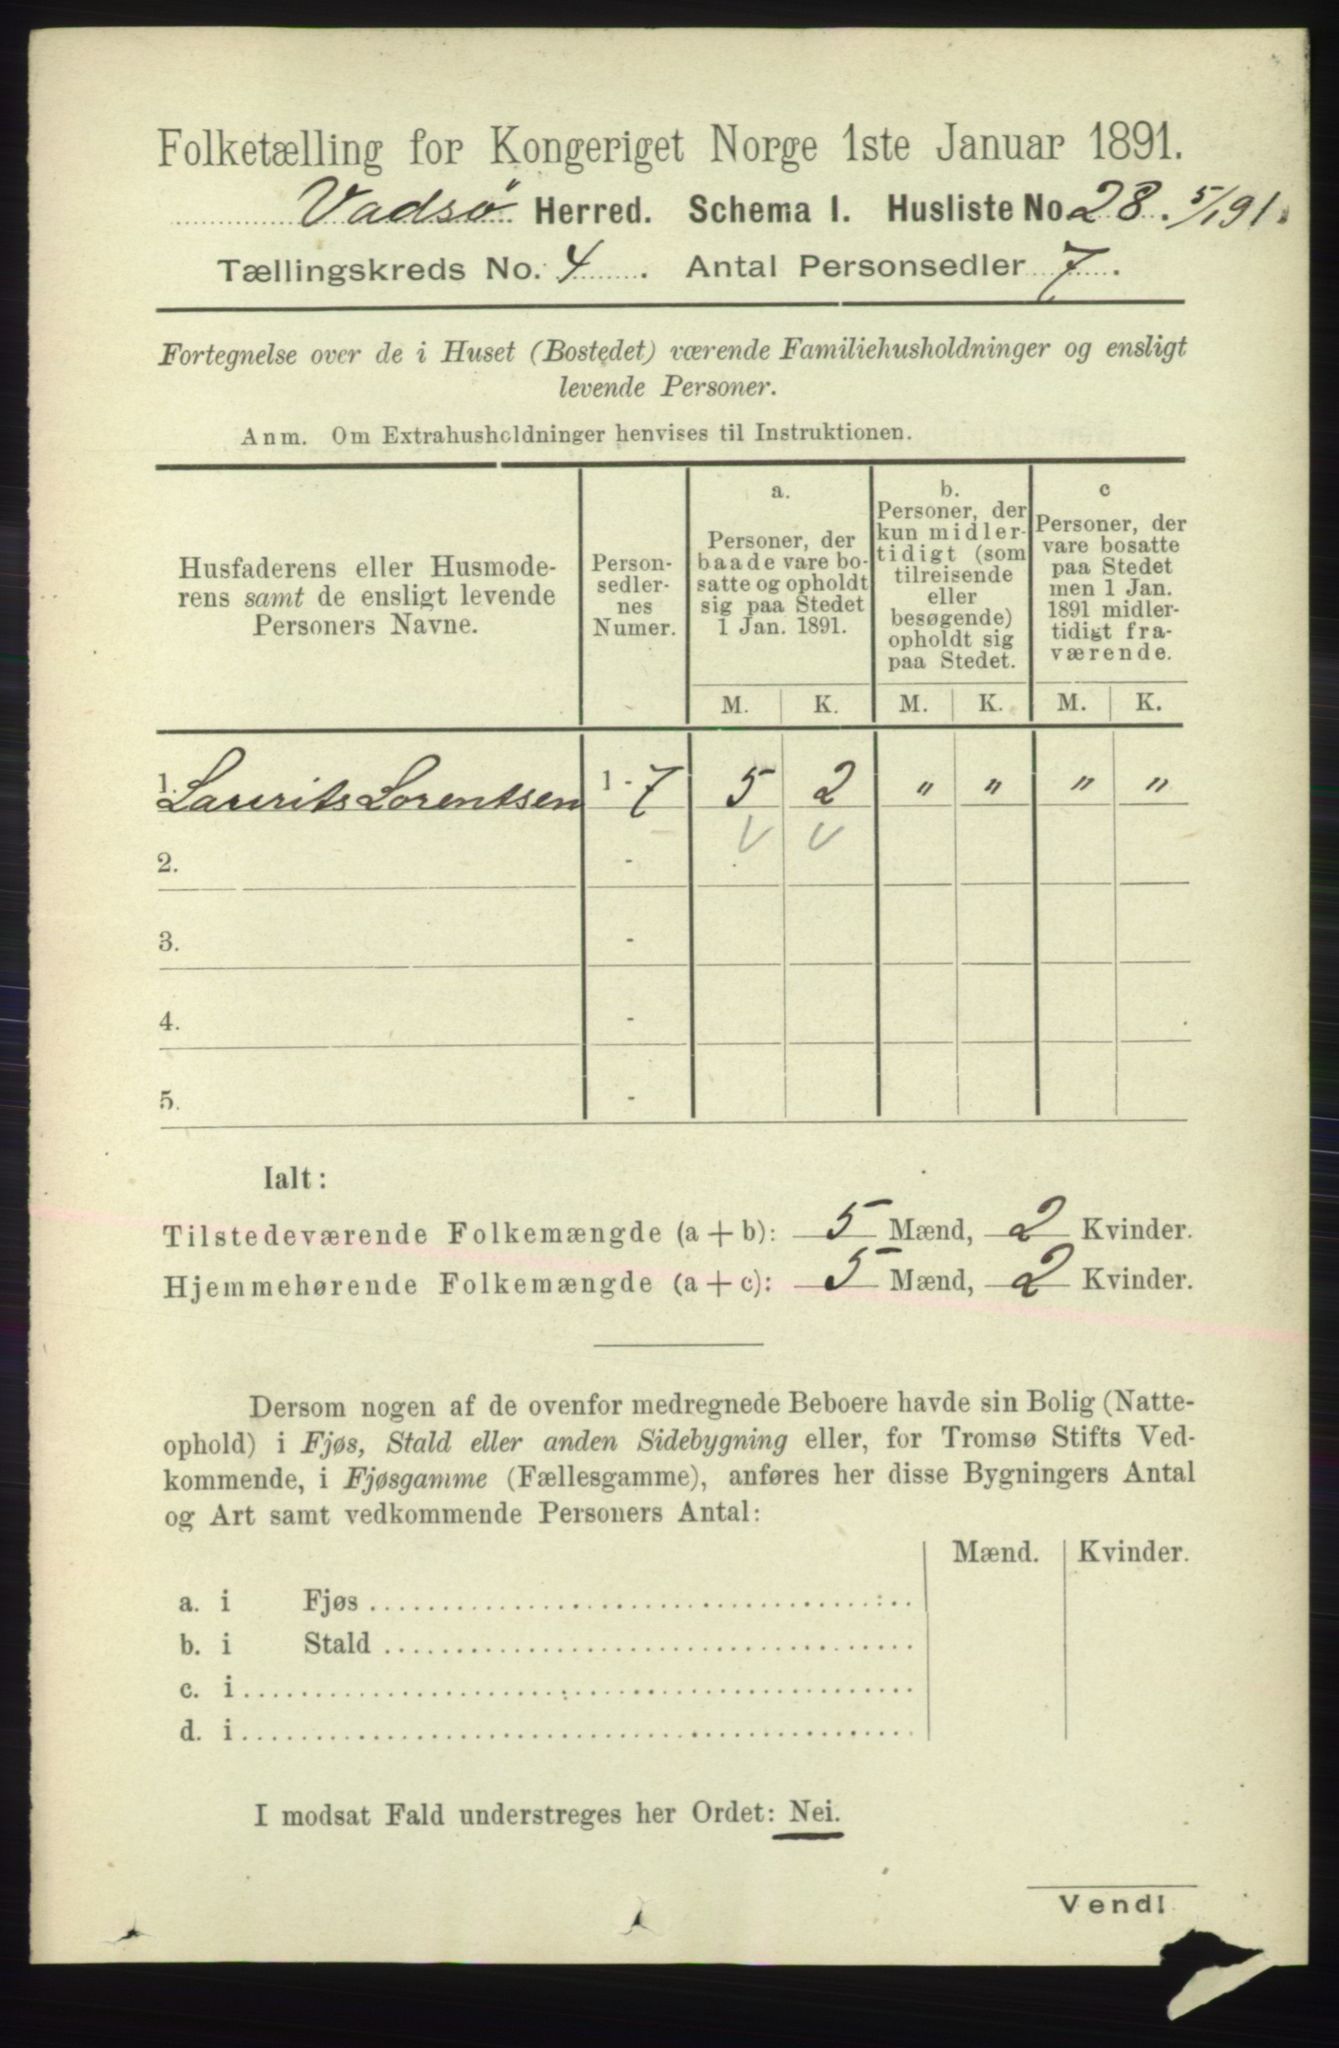 Folketælling for Kongeriget Norge 1ste Januar 1891.
Vadsø Herred. Schema I. Husliste No. 28. 5/1 91.
Tællingskreds No. 4. Antal Personsedler 7.
Fortegnelse over de i Huset (Bostedet) værende Familiehusholdninger og ensligt
levende Personer.
Anm. Om Extrahusholdninger henvises til Instruktionen.
Husfaderens eller Husmode-
rens samt de ensligt levende
Personers Navne.
Person-
sedler-
nes
Numer.
a.
Personer, der
baade vare bo-
satte og opholdt
sig paa Stedet
1 Jan. 1891.
b.
Personer, der
kun midler-
tidigt (som
tilreisende
eller
besøgende)
opholdt sig
paa Stedet.
c
Personer, der
vare bosatte
paa Stedet
men 1 Jan.
1891 midler-
tidigt fra-
værende.
M. K. M. K. M. K.
1. Laurits Lorentsen 1 - 7 5 2 " " " "
2. -
3. -
4. -
5. -
Ialt:
Tilstedeværende Folkemængde (a + b): 5 Mænd, 2 Kvinder.
Hjemmehørende Folkemængde (a + c): 5 Mænd, 2 Kvinder.
Dersom nogen af de ovenfor medregnede Beboere havde sin Bolig (Natte-
ophold) i Fjøs, Stald eller anden Sidebygning eller, for Tromsø Stifts Ved-
kommende, i Fjøsgamme (Fællesgamme), anføres her disse Bygningers Antal
og Art samt vedkommende Personers Antal:
Mænd. Kvinder.
a. i Fjøs
b. i Stald
c. i
d. i
I modsat Fald understreges her Ordet: Nei.
Vend!